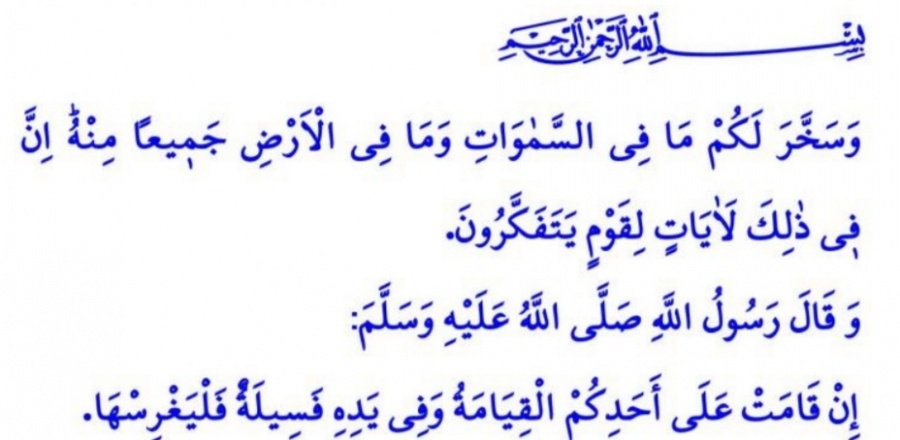 بِسْمِ اللّٰهِ الرَّحْمٰنِ الرَّحِيمِ
وَسَخَّرَ لَكُمْ مَا فِى السَّمٰوَاتِ وَمَا فِى الْاَرْضِ جَمٖيعًا مِنْهُۜ اِنَّ
فٖى ذٰلِكَ لَاٰيَاتٍ لِقَوْمٍ يَتَفَكَّرُونَ.
وَ قَالَ رَسُولُ اللَّهِ صَلَّى اللَّهُ عَلَيْهِ وَسَلَّمَ:
إِنْ قَامَتْ عَلَى أَحَدِكُمْ الْقِيَامَةُ وَفِى يَدِهِ فَسِيلَةٌ فَلْيَغْرِسْهَا.